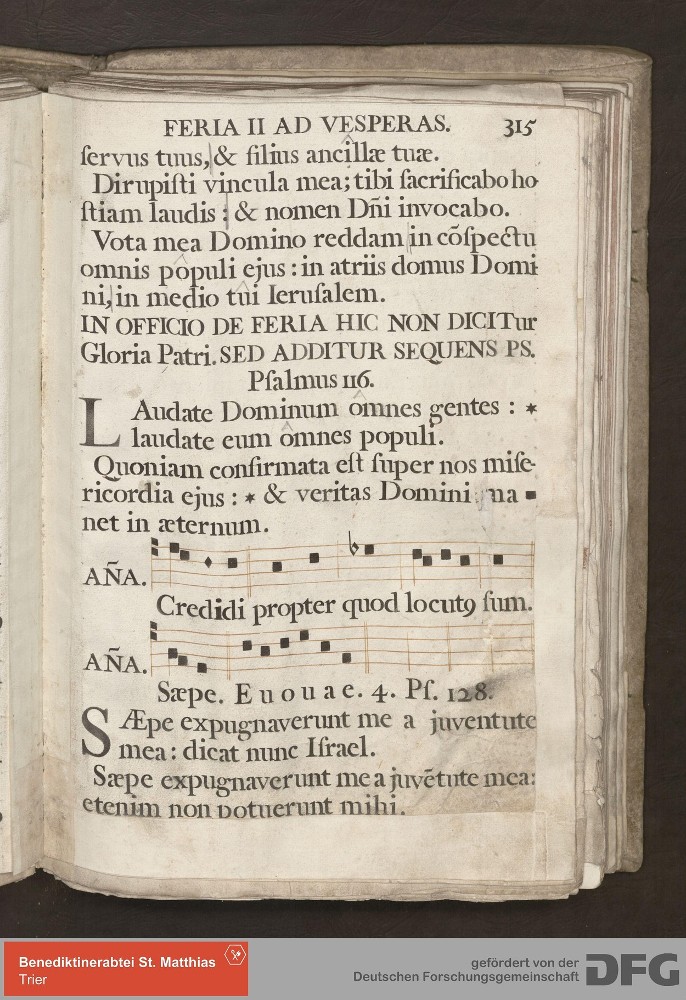 FERIA II AD VESPERAS. 315
ſervus tuus, & filius ancillæ tuæ.
Dirupiſti vincula mea; tibi ſacrificabo ho
ſtiam laudis : & nomen Dñi invocabo.
Vota mea Domino reddam in cõſpectu
omnis populi ejus : in atriis domus Domi
ni, in medio tui Ieruſalem.
IN OFFICIO DE FERIA HIC NON DICITur
Gloria Patri. SED ADDITUR SEQUENS PS.
Pſalmus 116.
LAudate Dominum omnes gentes : *
laudate eum omnes populi.
Quoniam confirmata eſt ſuper nos miſe-
ricordia ejus : * & veritas Domini ma-
net in æternum.
AÑA.
Credidi propter quod locutꝯ ſum.
AÑA.
Sæpe. E u o u a e. 4. Pſ. 128.
SÆpe expugnaverunt me a juventute
mea : dicat nunc Iſrael.
Sæpe expugnaverunt me a juvẽtute mea:
etenim non potuerunt mihi.
Benediktinerabtei St. Matthias
Trier
gefördert von der
Deutschen Forschungsgemeinschaft
DFG